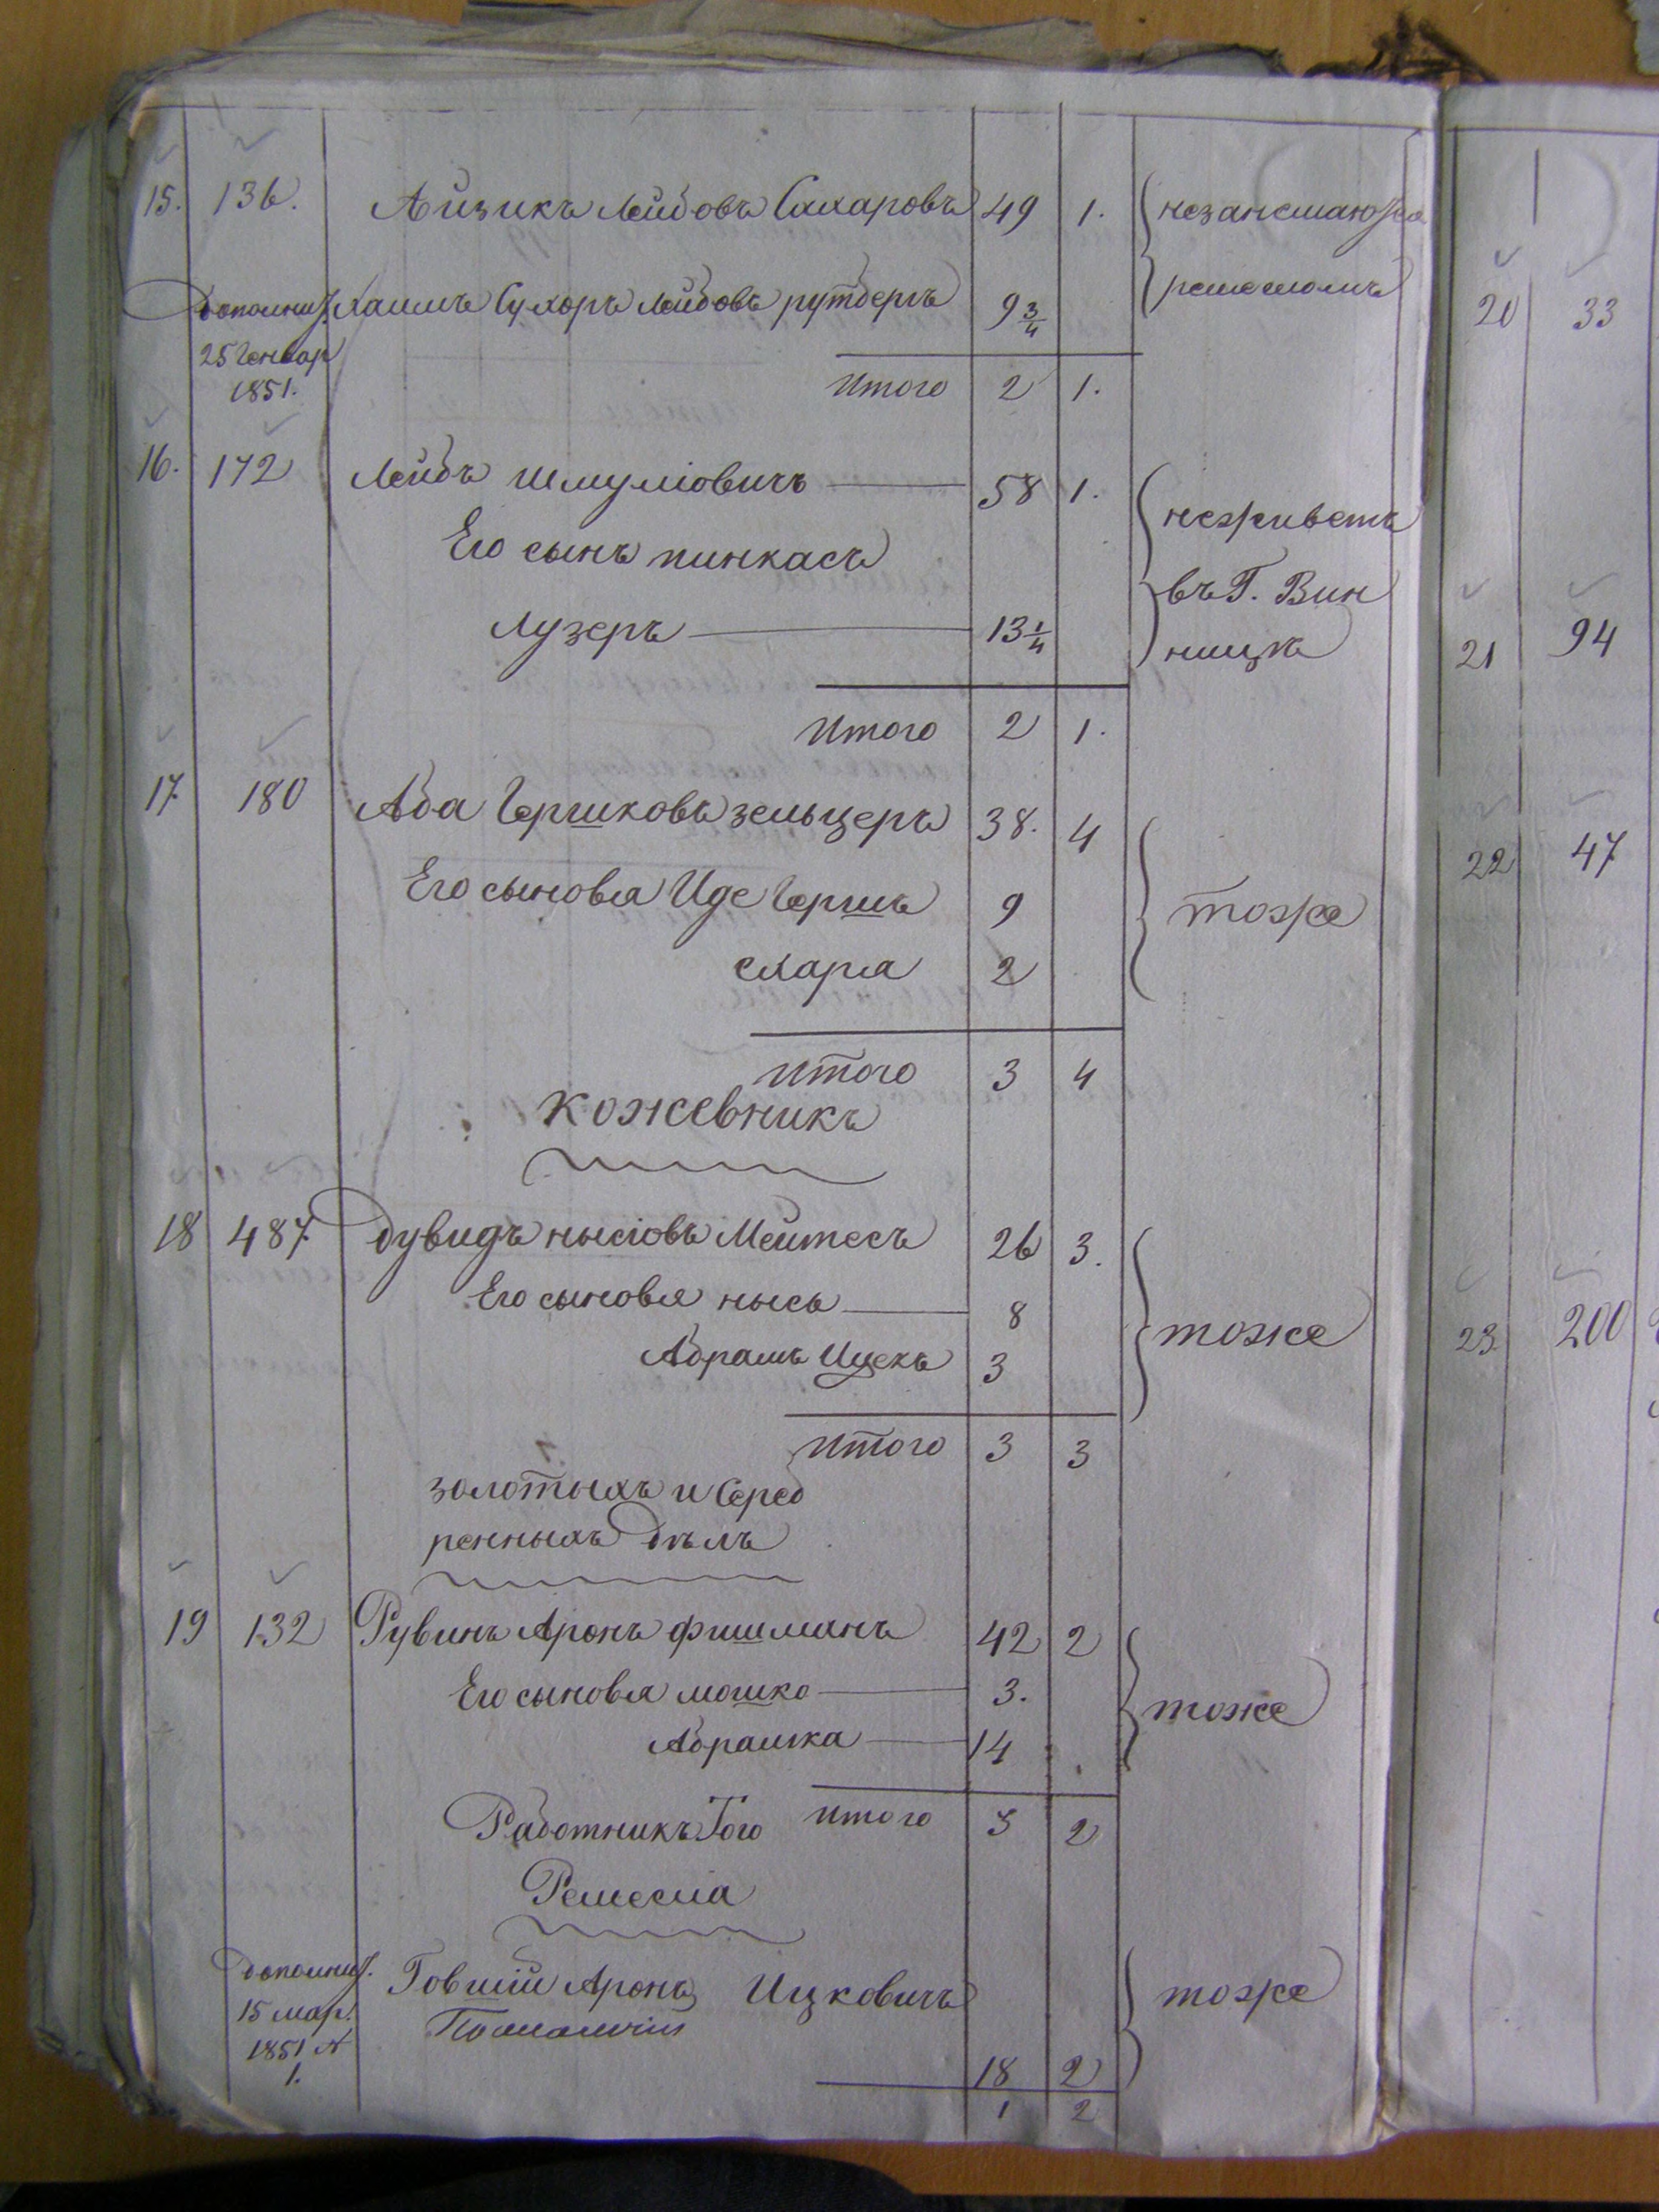 15. 136. Айзикъ Лейбовъ Сахаровъ 49 1. незанимаются
ремесломъ
дополнит. Хаимъ Сухоръ Лейбовъ рутбергъ 9 3/4
25 Генвар
1851.
Итого 2 1.
16. 172 Лейбъ Шмуліовичъ 58 1. неживетъ
Его сынъ пинкасъ
въ Г. Вин
Лузеръ 13 1/4
ницѣ
Итого 2 1.
17 180 Аба Гершковъ зельцеръ 38. 4
Его сыновья Иде Гершъ 9 тоже
схаря 2
Итого 3 4
Кожевникъ
18 487 Дувидъ нысіовъ Мейтесъ 26 3.
Его сыновья нысь 8
тоже
Абрамъ Ицекъ 3
Итого 3 3
золотыхъ и Сереб
ренныхъ дѣлъ
19 132 Рувинъ Аронъ фишманъ 42 2
Его сыновья мошко 3. тоже
Абрашка 14
Итого 3 2
Работникъ Того
Ремесла
дополнит. Аронъ Ицковичъ тоже
15 мар.
1851 №
1.
18 2
1 2
20 33
21 94
22 47
23 200